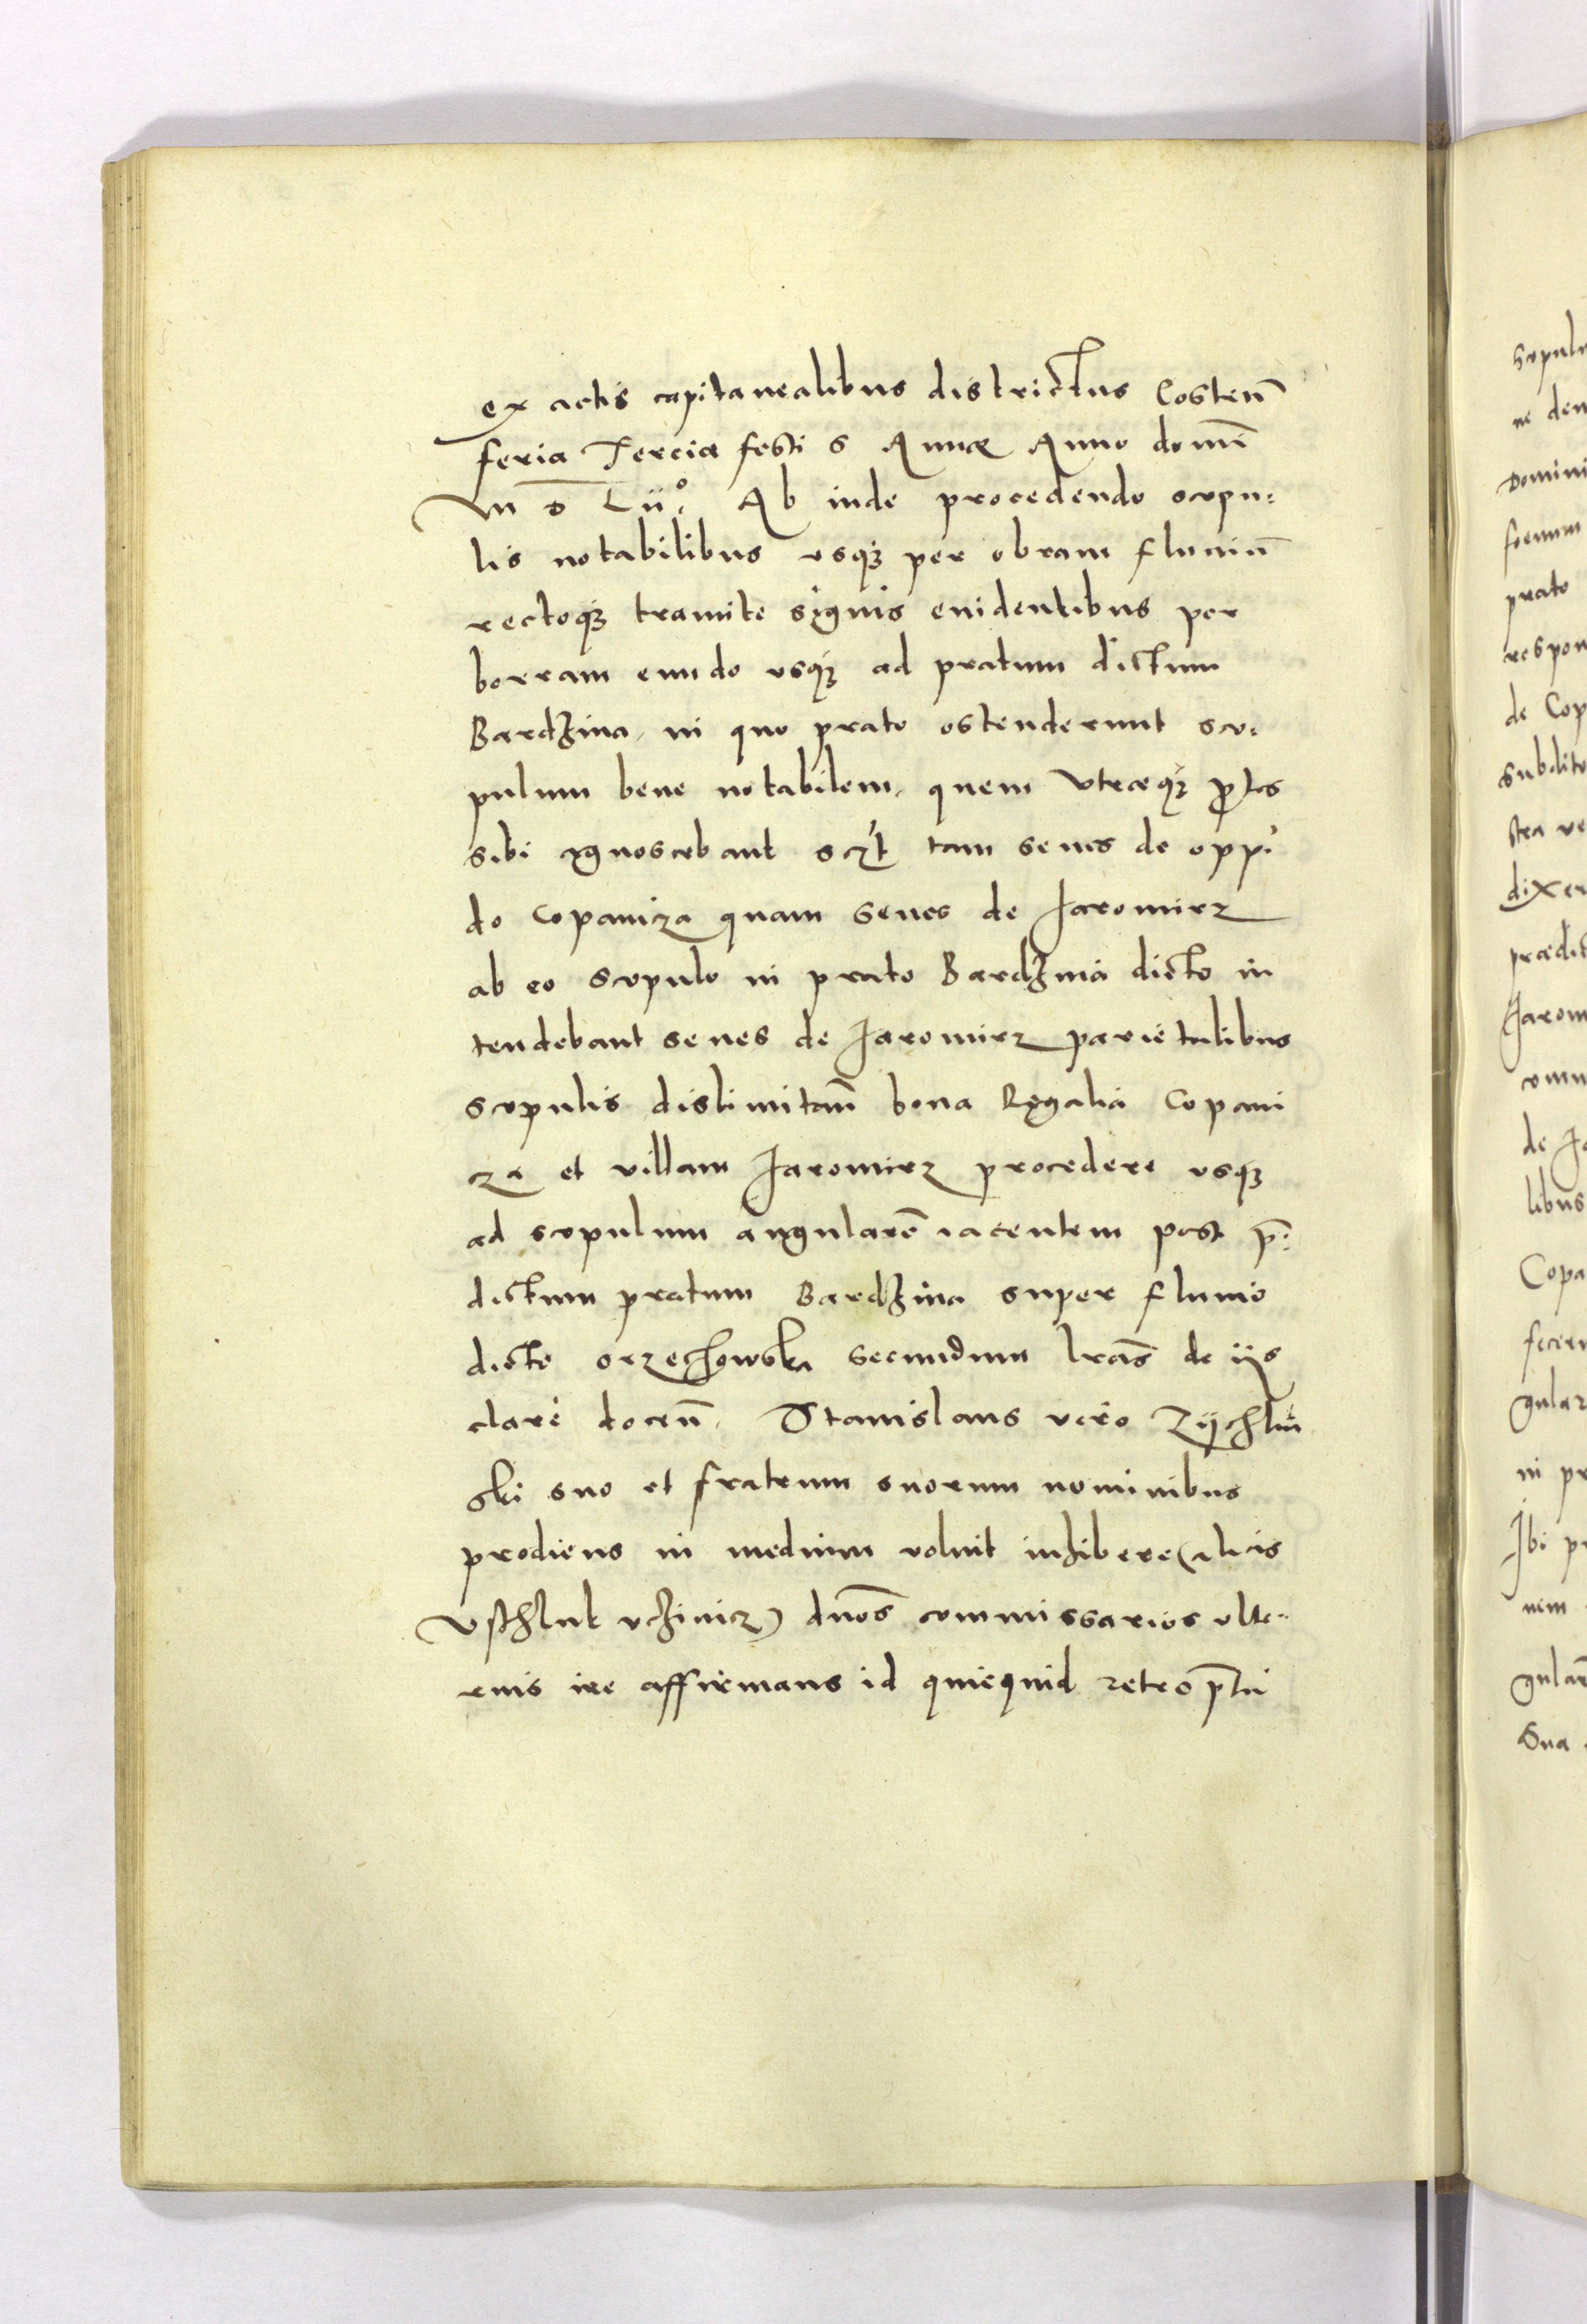 ex actis capitanealibus districtus Costeñ
feria Tercia festi s Annæ Anno domĩ
M D Lii° Ab inde procedendo scopu:
lis notabilibus vsqꝫ per obram fluuiũ
rectoqꝫ tramite signis euidentibus per
borram eundo vsqꝫ ad pratum dictum
Bardzina, in quo prato ostenderunt sco:
pulum bene notabilem, quem vtræqꝫ ptes
sibi cognoscebant sczt tam senes de oppi
do Copanicza quam senes de Jaromirz
ab eo scopulo in prato Bardzina dicto in
tendebant senes de Jaromirz parietalibus
scopulis dislimitañ bona Regalia Copani
cza et villam Jaromirz procedere vsqꝫ
ad scopulum angularē iacentem post p̄:
dictum pratum Bardzina super fluuio
dicto orzechowska secundum lrãs de iis
clare doceñ. Stanislaus vero Zÿchlin
ski suo et fratrum suorum nominibus
prodiens in medium voluit inhibere (alias
) dños commissarios vlte:
rius ire affirmans id quicquid retro
Scopulu
ne dem
Domini
foenum
prato
respon
de Cop
subdito
stra ve
dixer
prædict
Jarom
omn
de Ja
libus
Copa
fecer
gular
in pr
Ibi pr
nem
gular
Sua